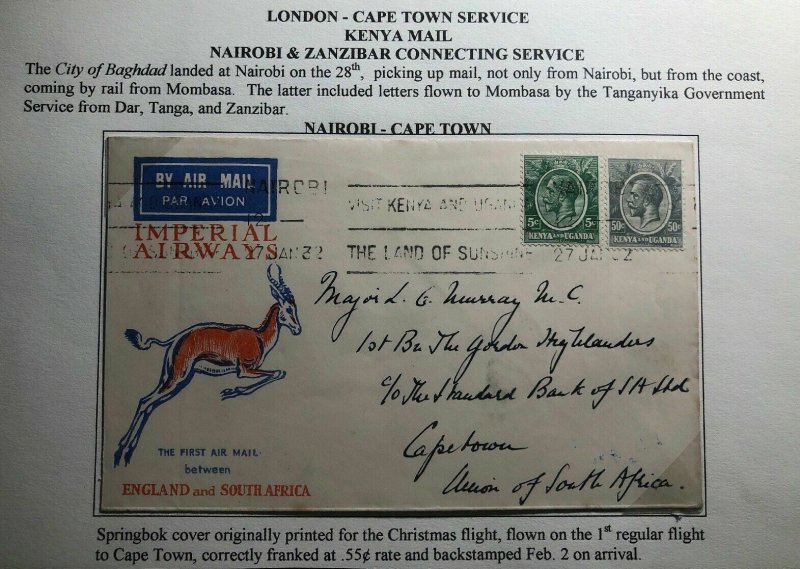 LONDON - CAPE TOWN SERVICE
KENYA MAIL
NAIROBI & ZANZIBAR CONNECTING SERVICE
The City of Baghdad landed at Nairobi on the 28th, picking up mail, not only from Nairobi, but from the coast,
coming by rail from Mombasa. The latter included letters flown to Mombasa by the Tanganyika Government
Service from Dar, Tanga, and Zanzibar.
NAIROBI - CAPE TOWN
BY AIR MAIL
PAR AVION
NAIROBI
27 JAN 32
VISIT KENYA AND UGAN
THE LAND OF SUNSHINE
27 JA 32
5c 5c
KENYA AND UGANDA
50c 50c
KENYA AND UGANDA
IMPERIAL
AIRWAYS
Major L. G. Murray M.C.
1st Bn The Gordon Highlanders
c/o The Standard Bank of SA Ltd
Capetown
Union of South Africa.
THE FIRST AIR MAIL
between
ENGLAND and SOUTH AFRICA
Springbok cover originally printed for the Christmas flight, flown on the 1st regular flight
to Cape Town, correctly franked at .55¢ rate and backstamped Feb. 2 on arrival.